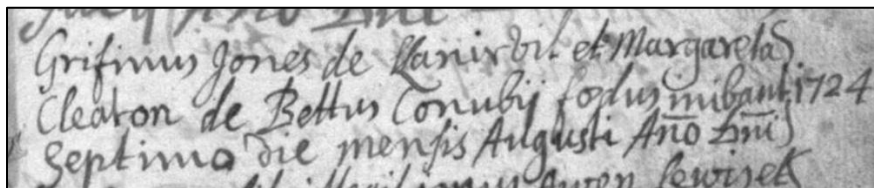 Grifinus Jones de Llanirvil et Margareta
Cleaton de Bettus Conubij fœdus inibant 1724
Septimo die mensis Augusti Año Dm̄i
Owen Lewis et